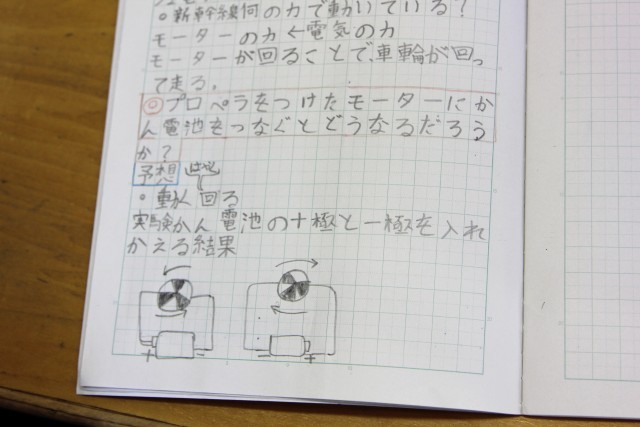 。新幹線何の力で動いている?
モーターの力←電気の力
モーターが回ることで、車輪が回っ
て走る。
◎プロペラをつけたモーターにか
ん電池をつなぐとどうなるだろう
か?
予想
・動く回る
実験かん電池の+極と-極を入れ
かえる結果
+ - - +